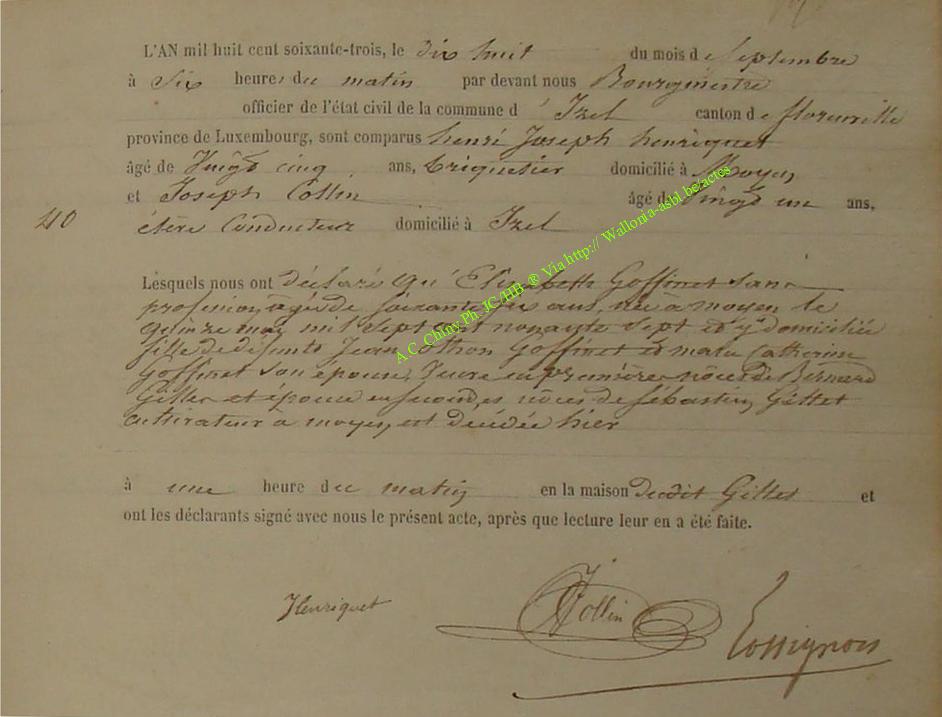 L'AN mil huit cent soixante-trois, le dix huit du mois de Septembre
à Six heures du matin par devant nous Bourgmestre
officier de l'état civil de la commune d'Izel canton de florenville
province de Luxembourg, sont comparus henri Joseph henriquet
âgé de Vingt cinq ans, briquetier domicilié à Moyen
et Joseph Collin âgé de Vingt un ans,
40
élève Conducteur domicilié à Izel
Lesquels nous ont déclaré qu'Elisabeth Goffinet sans
profession, agée de soixante six ans, née à moyen le
quinze mai mil sept cent nonante sept et y domiciliée
fille de défunts Jean Goffinet et Catherine
Goffinet son épouse, Veuve en premières nôces de Bernard
Gilles et épouse en secondes noces de Sébastien Gillet
cultivateur à moyen, est décédée hier
à une heure du matin en la maison dudit Gillet et
ont les déclarants signé avec nous le présent acte, après que lecture leur en a été faite.
Henriquet
JCollin
Rossignon
A.C. Chiny Ph. JC/HB ® Via http:// Wallonia-asbl.be/actes